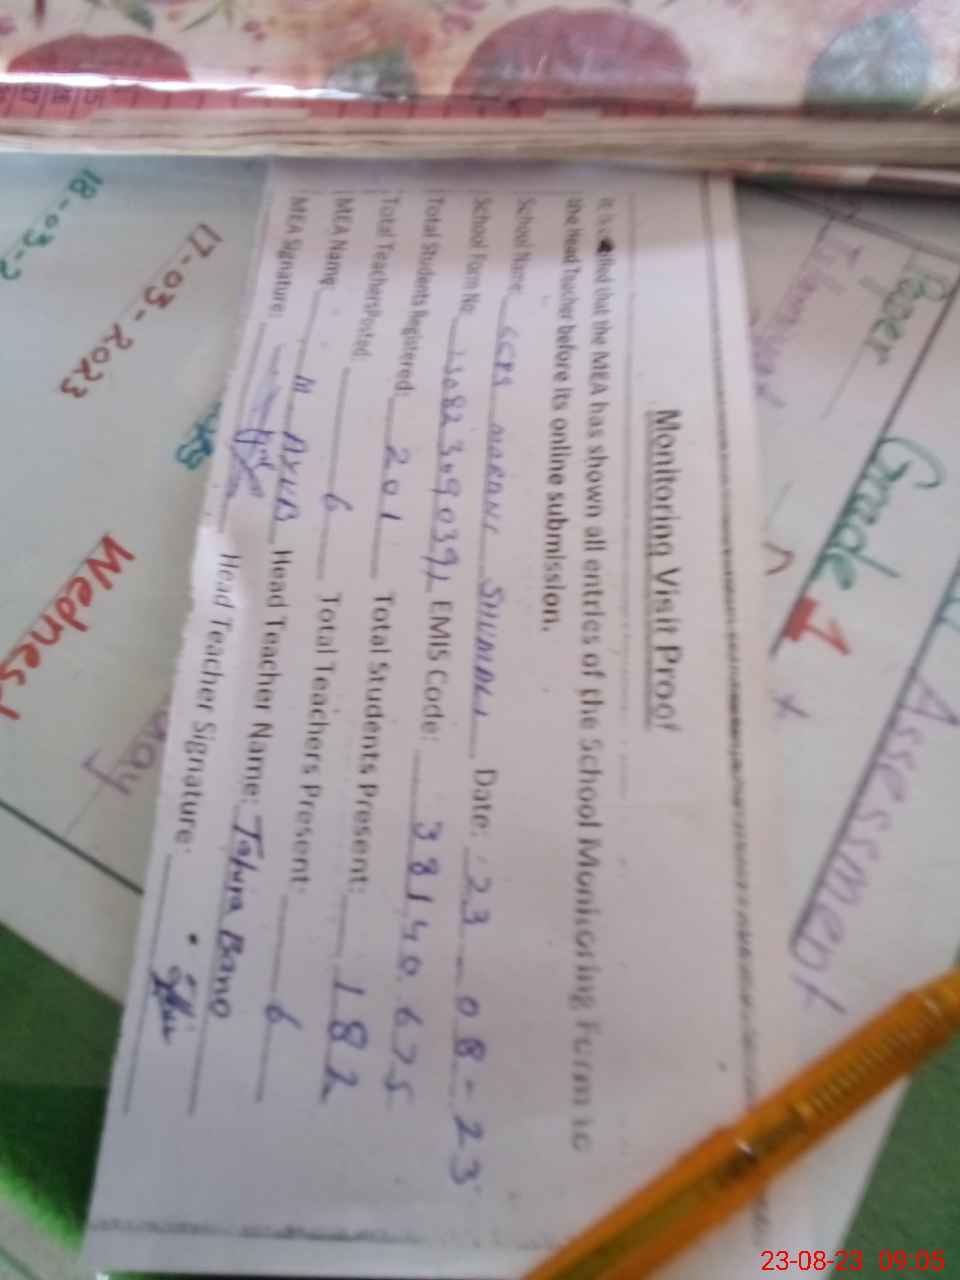 Monitoring Visit Proof
that the MEA has shown all entries of the School Monitoring Form to
the Head Teacher before its online submission.
School Name: GGPS Date: 23-08-23
School Form No: EMIS Code: 38140675
Total Students Registered: 201 Total Students Present: 182
Total Teachers Posted: 6 Total Teachers Present: 6
MEA Name: M AYUB Head Teacher Name: Bano
MEA Signature: Head Teacher Signature:
Paper
Grade 1
Assessment
18-03-2
17-03-2023
Wednes
23-08-23 09:05